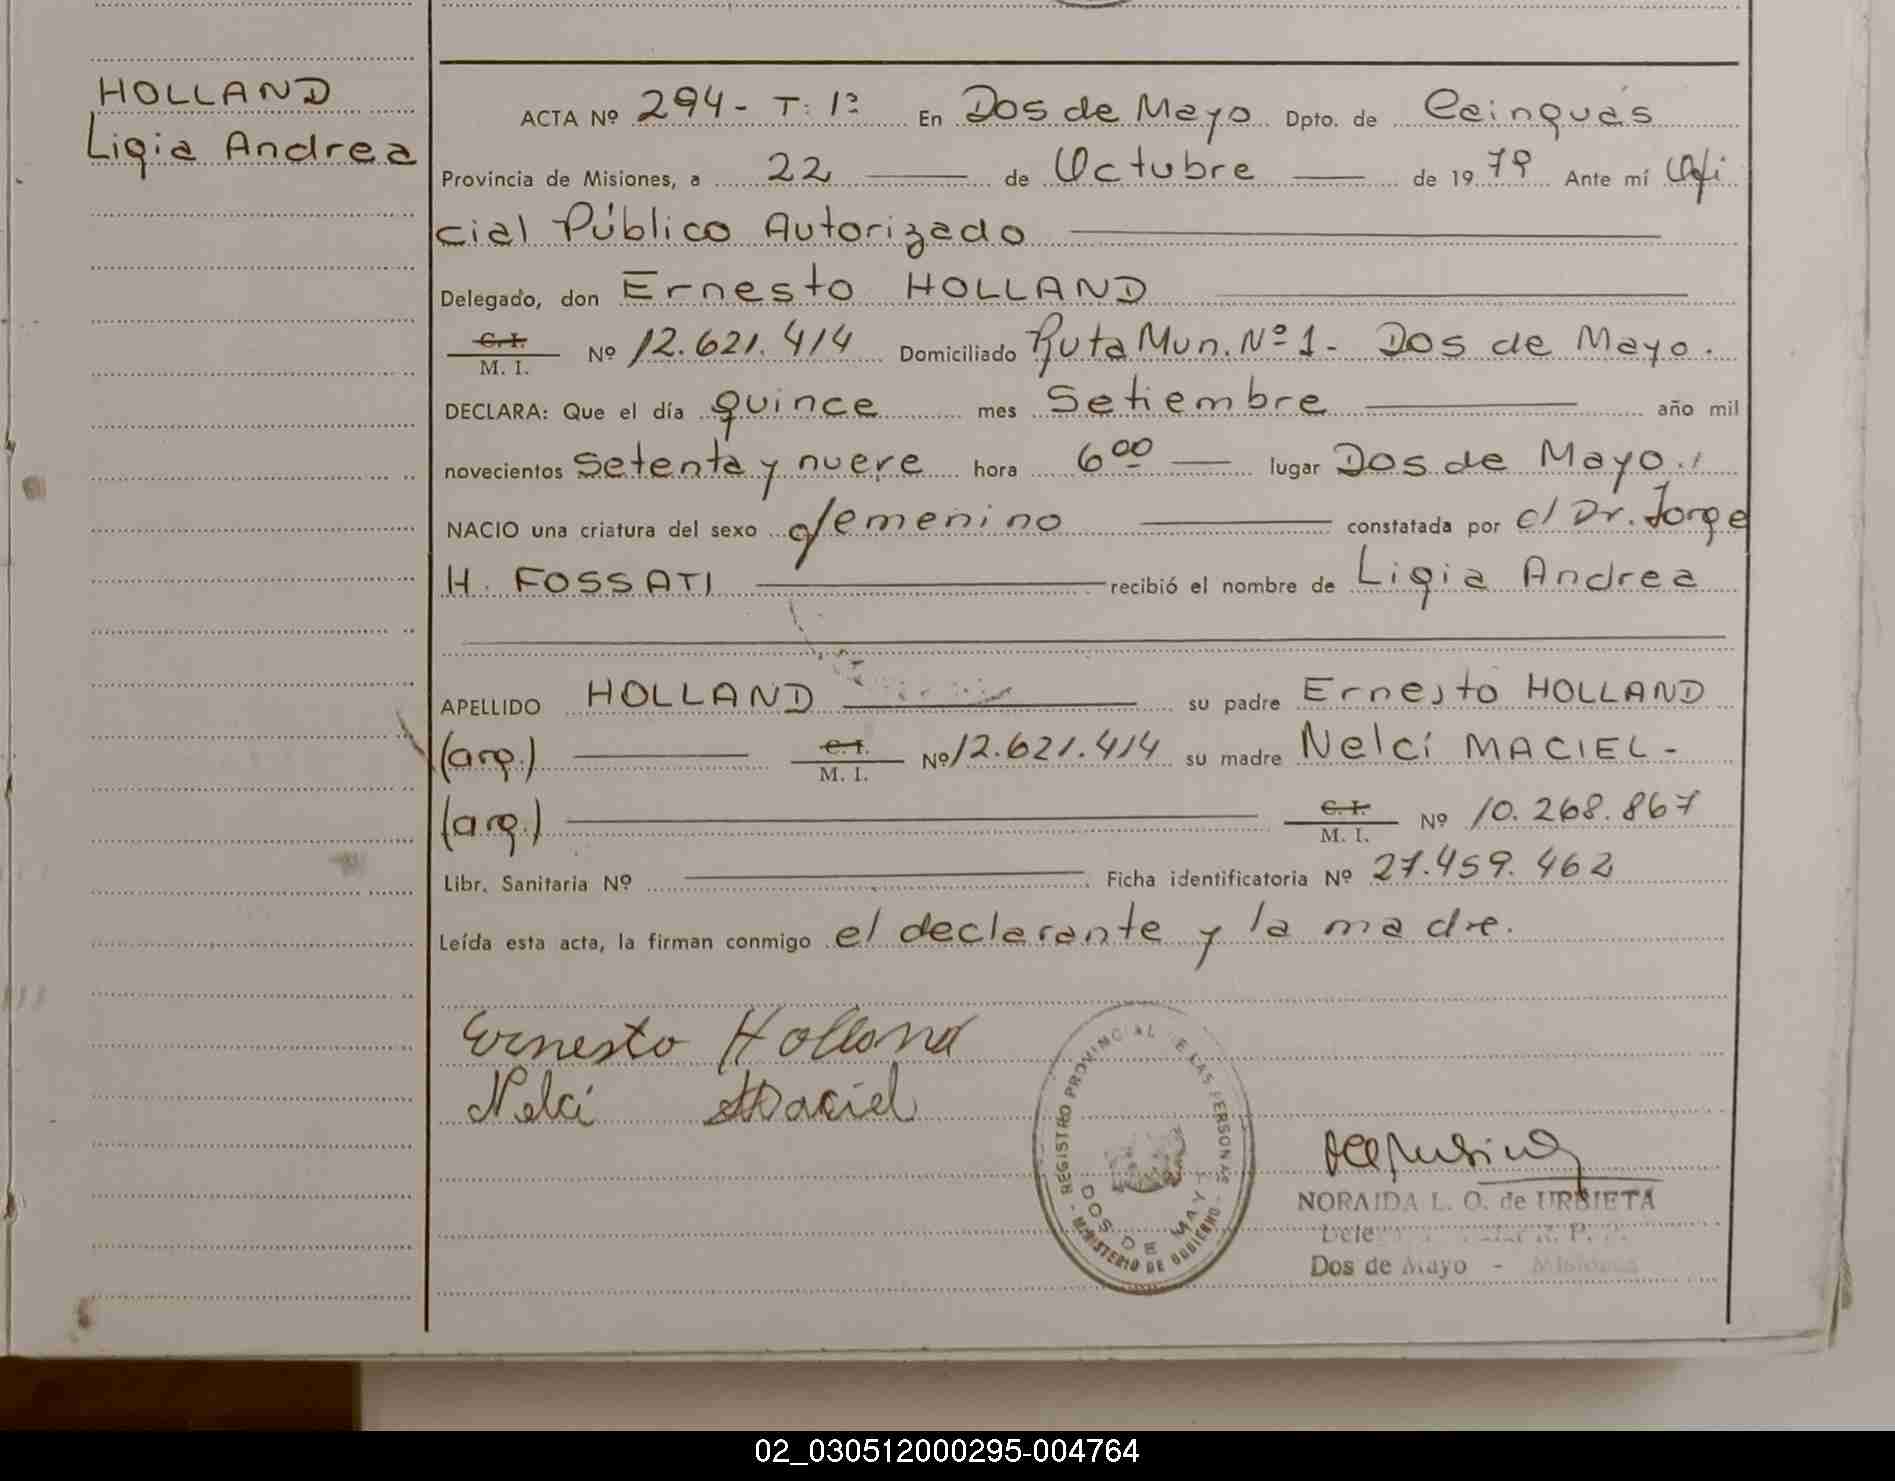 HOLLAND
Ligia Andrea
ACTA Nº 294- T: 1º En Dos de Mayo Dpto. de Cainguás
Provincia de Misiones, a 22 de Octubre de 1979 Ante mí Ofi
cial Público Autorizado
Delegado, don Ernesto HOLLAND
C. I. M. I. Nº 12.621.414 Domiciliado Ruta Mun. Nº 1- Dos de Mayo.
DECLARA: Que el día quince mes Setiembre año mil
novecientos setenta y nueve hora 6⁰⁰ lugar Dos de Mayo.
NACIO una criatura del sexo femenino constatada por c/ Dr. Jorge
H. FOSSATI recibió el nombre de Ligia Andrea
APELLIDO HOLLAND su padre Ernesto HOLLAND
(arg.) C. I. M. I. Nº 12.621.414 su madre Nelcí MACIEL-
(arg.) C. I. M. I. Nº 10.268.867
Libr. Sanitaria Nº Ficha identificatoria Nº 27.459.462
Leída esta acta, la firman conmigo el declarante y la madre.
Ernesto Holland
Nelcí Maciel
REGISTRO PROVINCIAL DE LAS PERSONAS
DOS DE MAYO
- MINISTERIO DE GOBIERNO -
NORAIDA L. O. de URBIETA
Dos de Mayo - Misiones
02_030512000295-004764